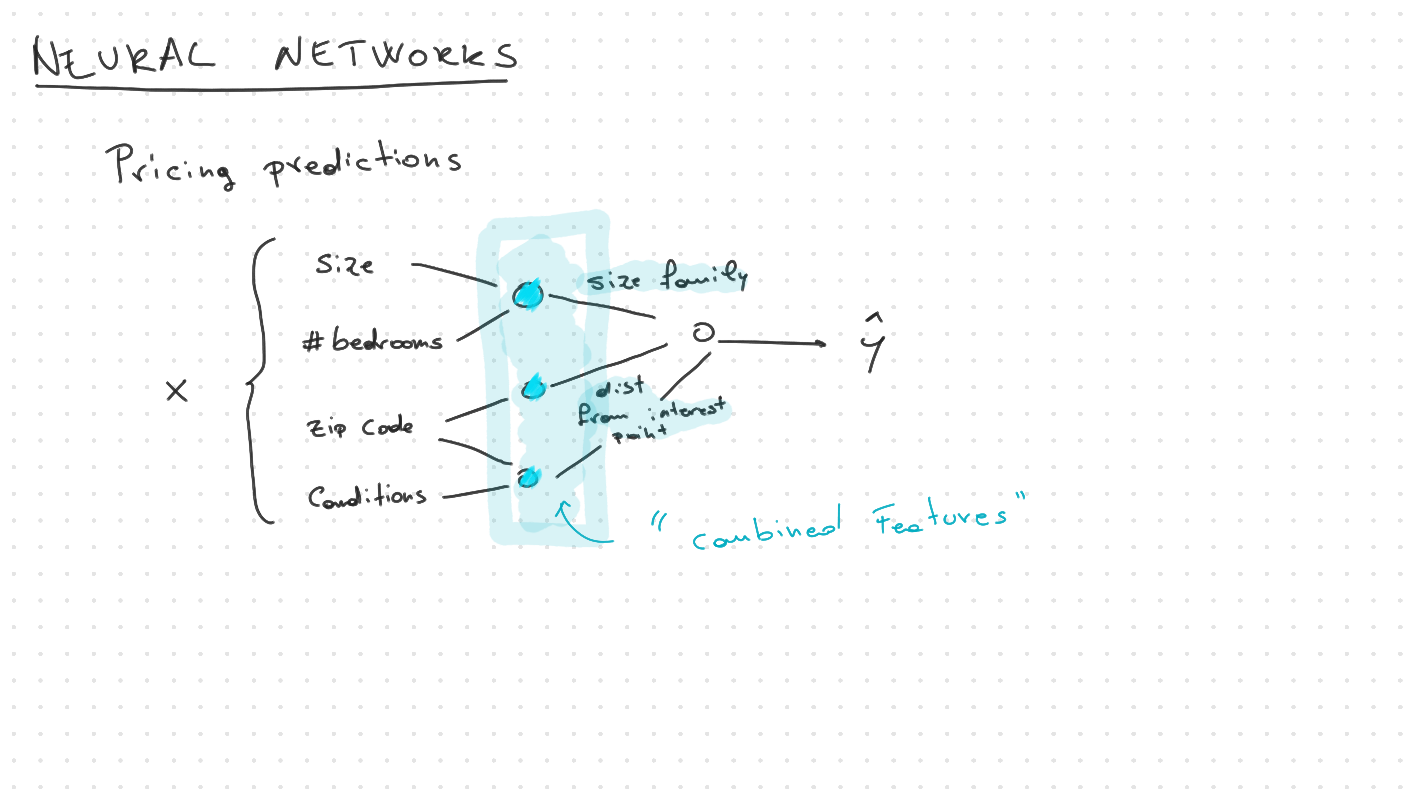 NEURAL NETWORKS
Pricing predictions
x
Size
# bedrooms
Zip Code
Conditions
size family
dist
from interest
point
ŷ
"Combined Features"